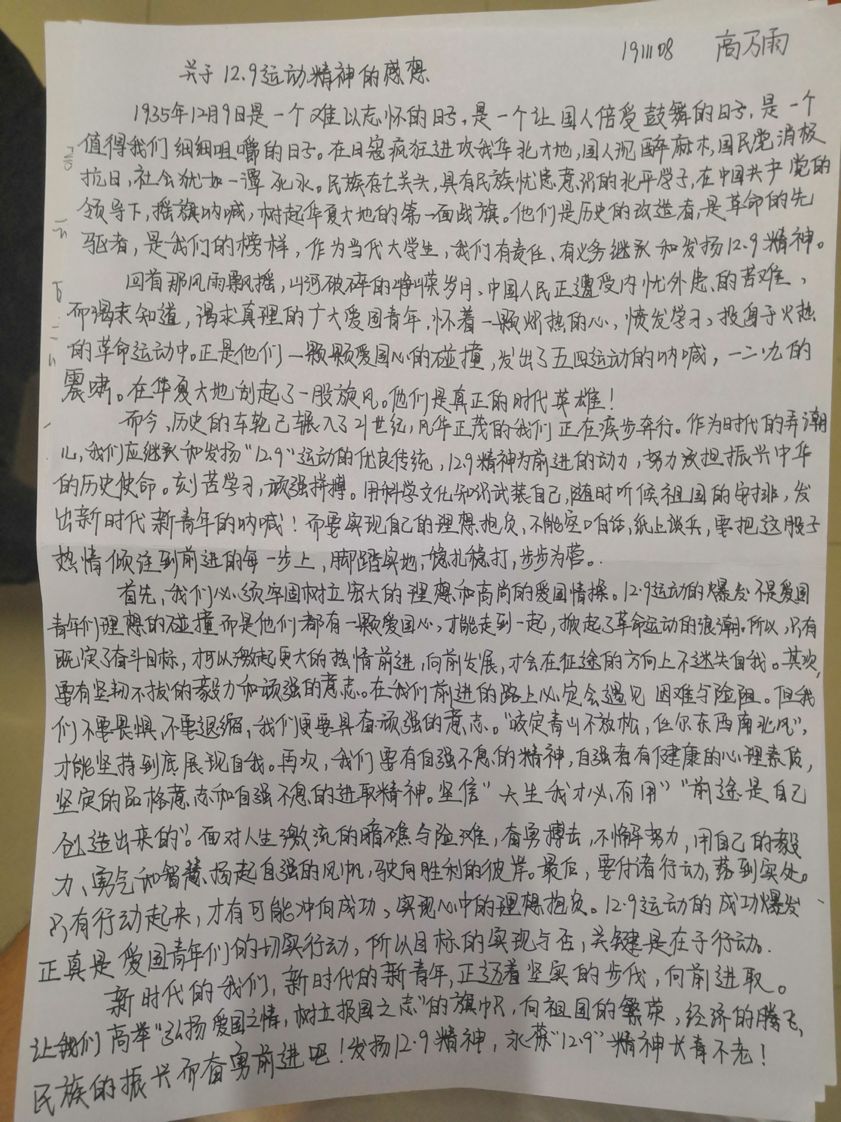 191108 高万雨
关于12.9运动精神的感想
1935年12月9日是一个难以忘怀的日子,是一个让国人倍受鼓舞的日子,是一个
值得我们细细咀嚼的日子。在日寇疯狂进攻我华北大地,国人沉醉麻木,国民党消极
抗日,社会犹如一潭死水。民族存亡关头,具有民族忧患意识的北平学子,在中国共产党的
领导下,摇旗呐喊,树起华夏大地的第一面战旗。他们是历史的改造者,是革命的先
驱者,是我们的榜样,作为当代大学生,我们有责任、有义务继承和发扬12.9精神。
回首那风雨飘摇,山河破碎的峥嵘岁月、中国人民正遭受内忧外患的苦难、
而渴求知道,渴求真理的广大爱国青年,怀着一颗炽热的心,愤发学习、投身于火热
的革命运动中。正是他们一颗颗爱国心的碰撞,发出了五四运动的呐喊,一二·九的
震啸。在华夏大地刮起了一股旋风。他们是真正的时代英雄!
而今、历史的车轮已辗入了21世纪,风华正茂的我们正在疾步奔行。作为时代的弄潮
儿,我们应继承和发扬"12.9"运动的优良传统,12.9精神为前进的动力,努力承担振兴中华
的历史使命。刻苦学习,顽强拼搏。用科学文化知识武装自己,随时听候祖国的安排,发
出新时代新青年的呐喊!而要实现自己的理想抱负,不能空口白话,纸上谈兵,要把这股子
热情倾注到前进的每一步上,脚踏实地,稳扎稳打,步步为营。
首先,我们必须牢固树立宏大的理想和高尚的爱国情操。12.9运动的爆发不是爱国
青年们理想的碰撞而是他们都有一颗爱国心,才能走到一起,掀起了革命运动的浪潮。所以,只有
既定了奋斗目标,才可以激起更大的热情前进,向前发展,才会在征途的方向上不迷失自我。其次,
要有坚韧不拔的毅力和顽强的意志。在我们前进的路上必定会遇见困难与险阻。但我
们不要畏惧,不要退缩,我们更要具有顽强的意志。"咬定青山不放松,任尔东西南北风",
才能坚持到底展现自我。再次,我们要有自强不息的精神,自强者有健康的心理素质,
坚定的品格意志和自强不息的进取精神。坚信"天生我才必有用""前途是自己
创造出来的"。面对人生激流的暗礁与险难,奋勇搏击,不懈努力,用自己的毅
力、勇气和智慧扬起自强的风帆,驶向胜利的彼岸。最后,要付诸行动,落到实处。
只有行动起来,才有可能冲向成功、实现心中的理想抱负。12.9运动的成功爆发
正真是爱国青年们的切实行动,所以目标的实现与否,关键是在于行动。
新时代的我们,新时代的新青年,正迈着坚实的步伐,向前进取。
让我们高举"弘扬爱国之情,树立报国之志"的旗帜,向祖国的繁荣,经济的腾飞,
民族的振兴而奋勇前进吧!发扬12.9精神,永葆"12.9"精神长青不老!